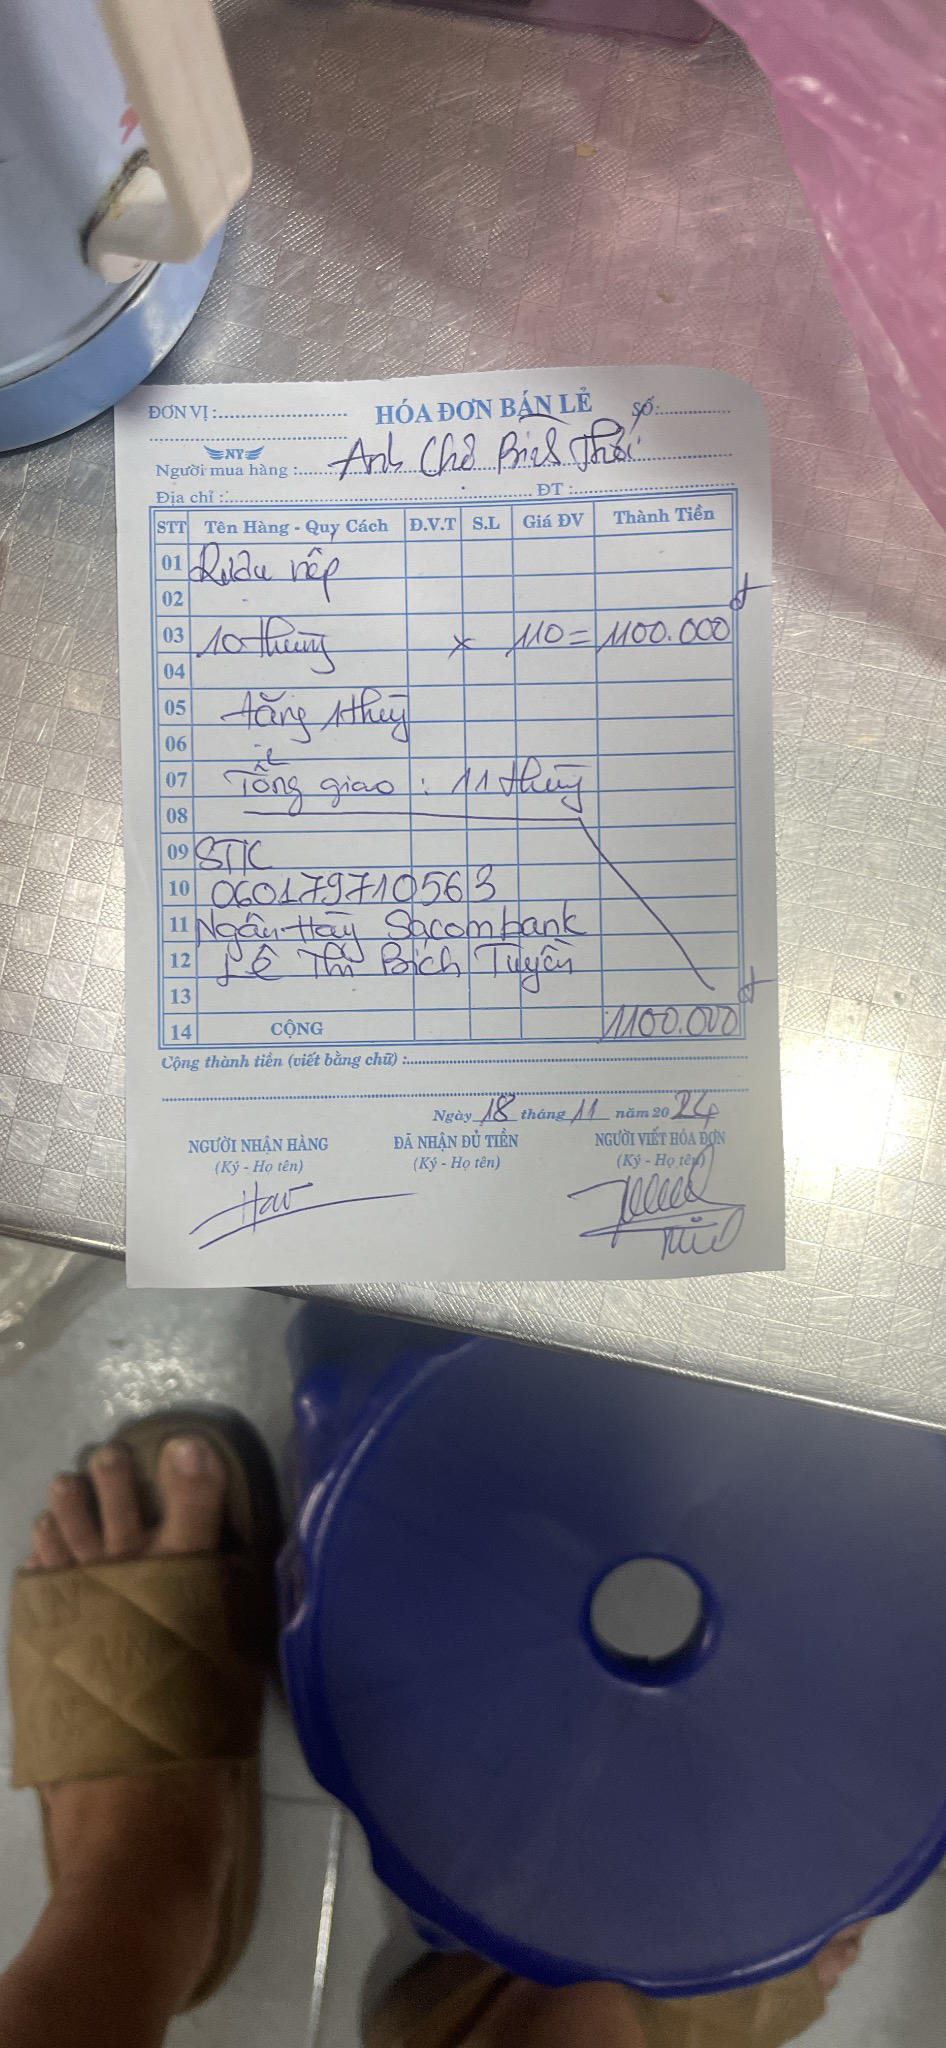 ĐƠN VỊ : HÓA ĐƠN BÁN LẺ SỐ:
NY
Người mua hàng : Anh Chở Bích Thới
Địa chỉ : ĐT :
STT Tên Hàng - Quy Cách Đ.V.T S.L Giá ĐV Thành Tiền
01 Rượu nếp
02
03 10 thùng x 110 = 1100.000đ
04
05 tặng 1 thùng
06
07 Tổng giao : 11 thùng
08
09 STK
10 060179710563
11 Ngân Hàng Sacombank
12 Lê Thị Bích Tuyền
13
14 CỘNG 1100.000đ
Cộng thành tiền (viết bằng chữ) :
Ngày 18 tháng 11 năm 2024
NGƯỜI NHẬN HÀNG ĐÃ NHẬN ĐỦ TIỀN NGƯỜI VIẾT HÓA ĐƠN
(Ký - Họ tên) (Ký - Họ tên) (Ký - Họ tên)